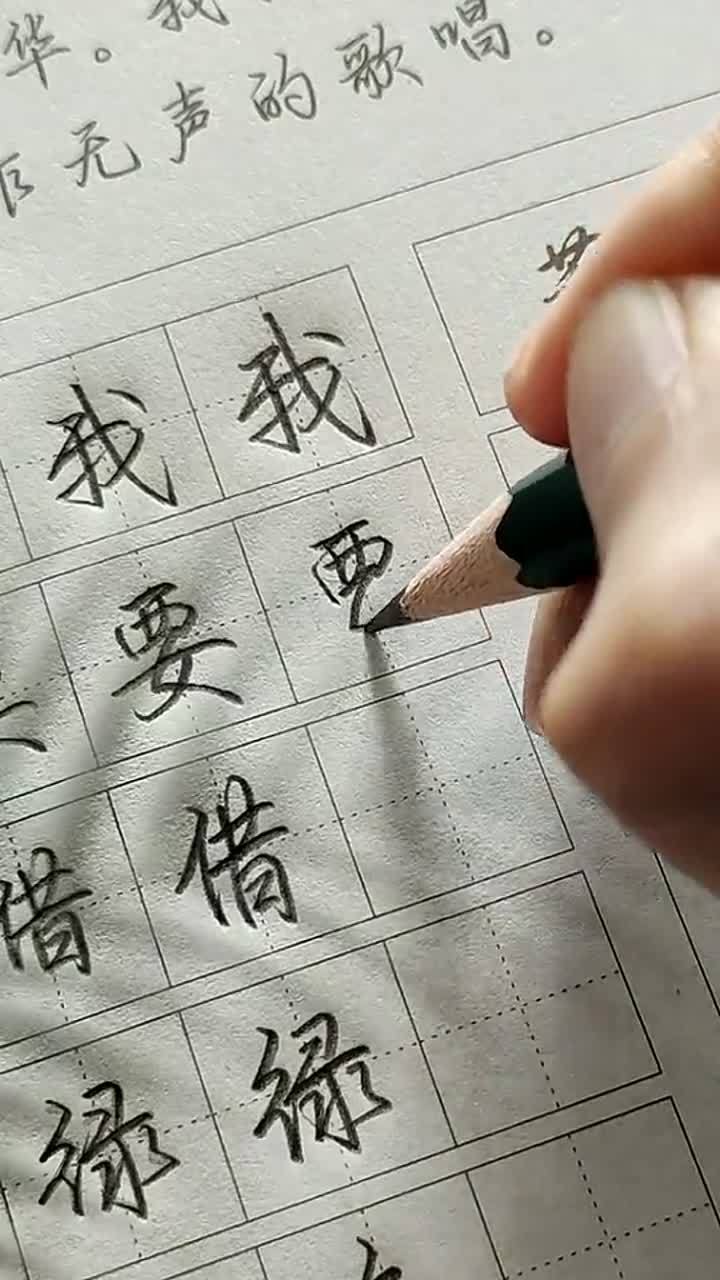 华。我
无声的歌唱。
我 我
要
借 借
绿 绿